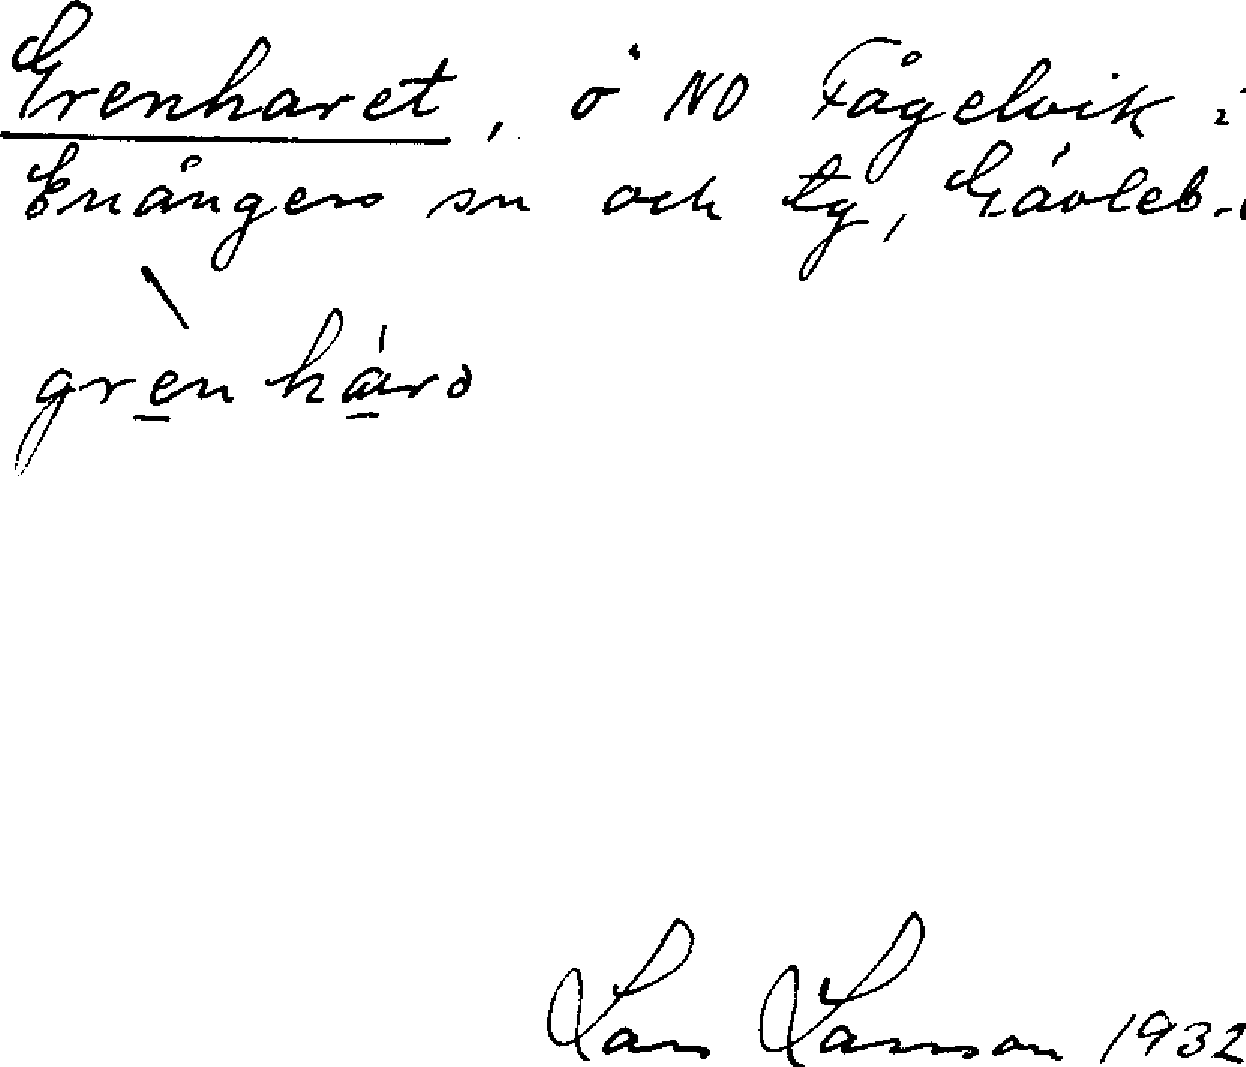 Grenharet, ö NO Fågelvik i
Enångers sn och tg, Gävleb.
grèn hárə
Lars Larsson 1932